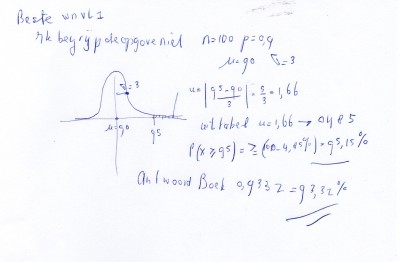 Beste wnvl1
Ik begrijp de opgave niet n=100 p=0,9
μ=90 σ=3
σ=3
u=|95-90/3|=5/3=1,66
uit tabel u=1,66 → 0485
μ=90 95
P(x⩾95)= ≥(100-4,85%)=95,15%
Antwoord Boek 0,9332=93,32%